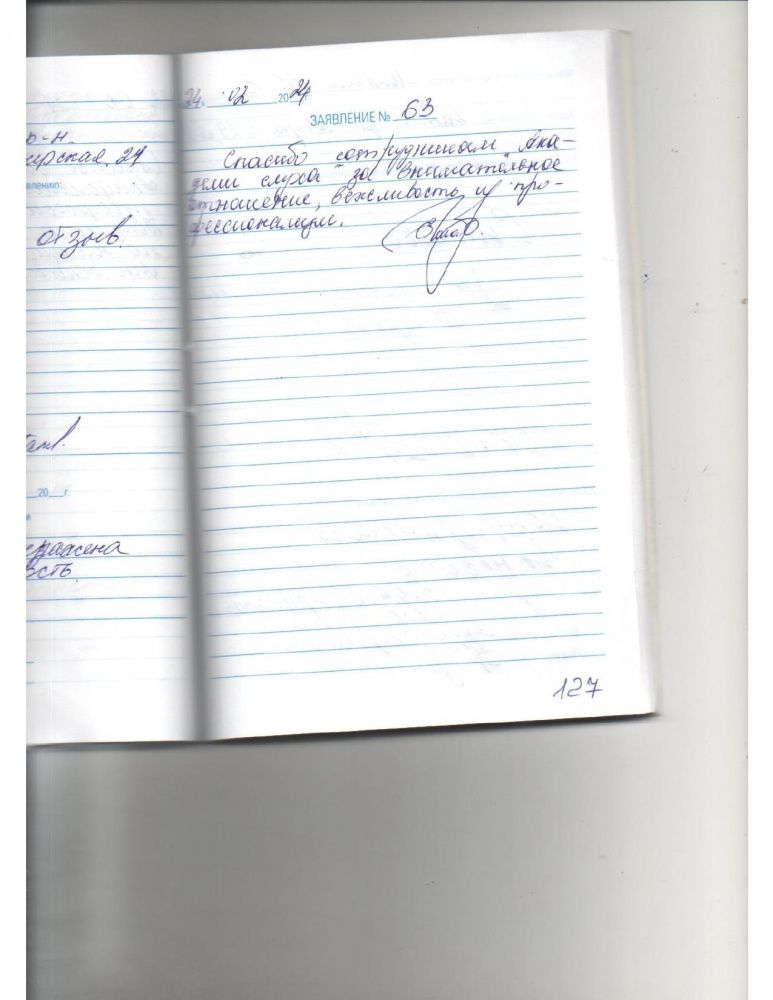 р-н.
ерская, 24
явлению:
отзыв.
20 г.
ражена
ость.
24. 02 2024г.
ЗАЯВЛЕНИЕ № 63
Спасибо сотрудникам „Ака-
деми слуха" за внимательное
отношение, вежливость и про-
фессионализм.
127